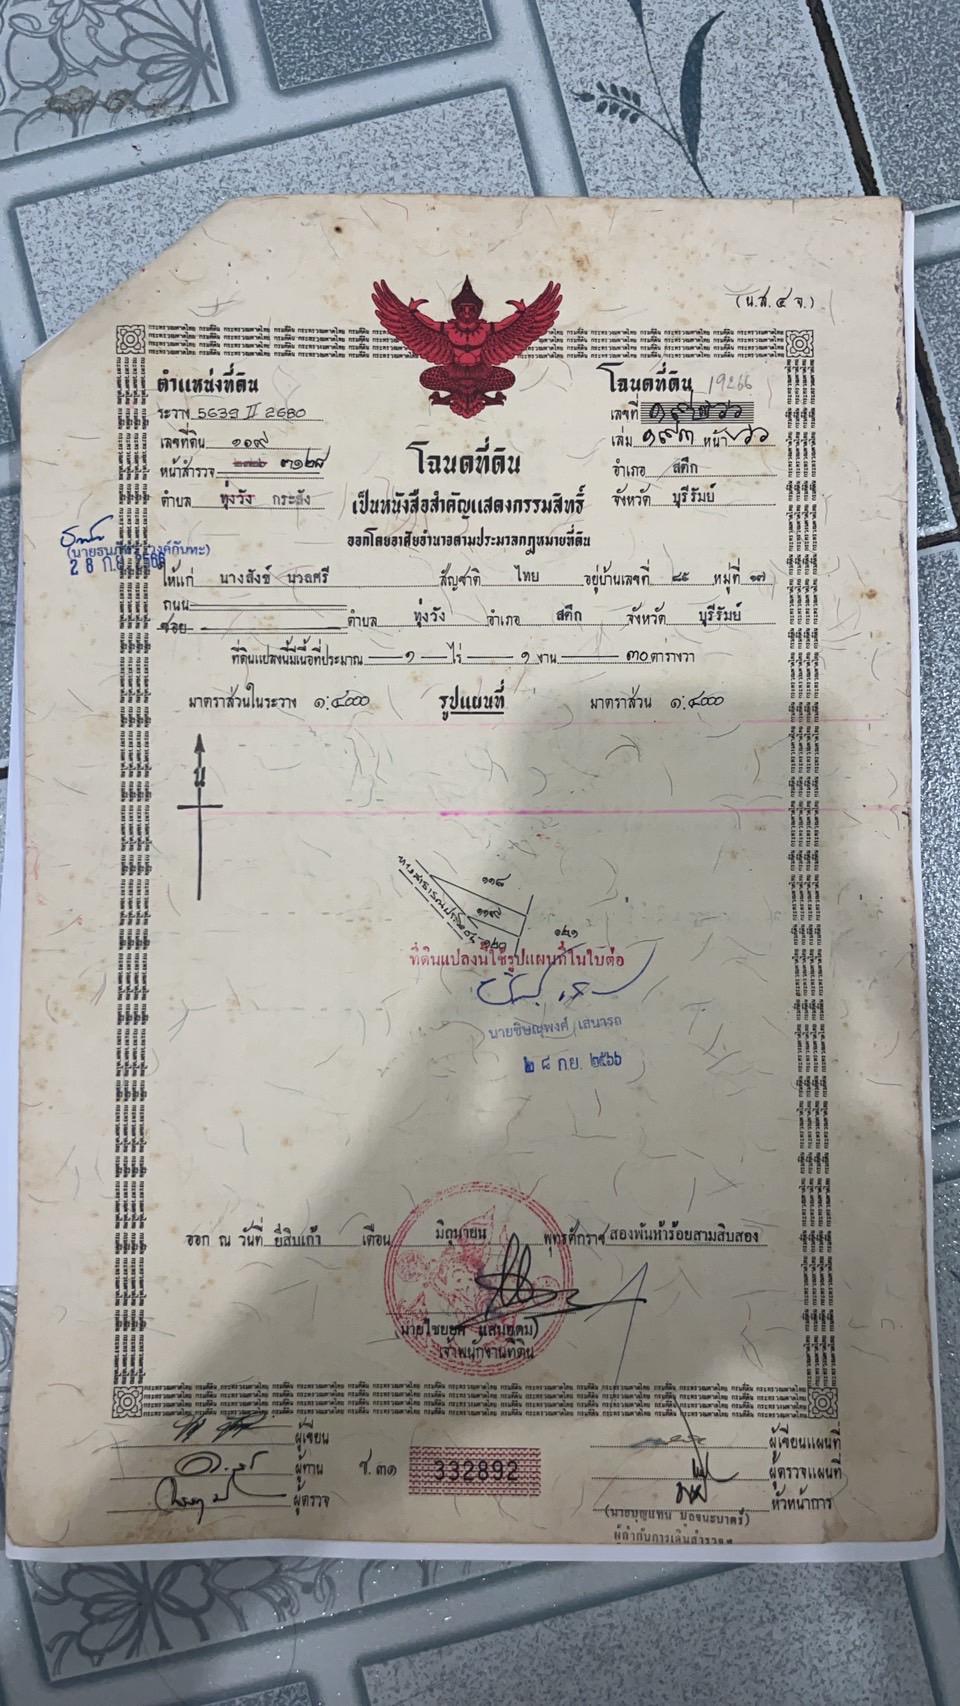 (น.ส. ๔ จ.)
ตำแหน่งที่ดิน
ระวาง 5639 II 2680
เลขที่ดิน ๑๑๙
หน้าสำรวจ ๓๑๒๘
ตำบล ทุ่งวัง กระสัง
โฉนดที่ดิน 19266
เลขที่
เล่ม ๑๙๓ หน้า ๖๖
อำเภอ สตึก
จังหวัด บุรีรัมย์
โฉนดที่ดิน
เป็นหนังสือสำคัญแสดงกรรมสิทธิ์
ออกโดยอาศัยอำนาจตามประมวลกฎหมายที่ดิน
28 ก.ย. 2566
ให้แก่ นางสังข์ นวลศรี สัญชาติ ไทย อยู่บ้านเลขที่ ๘๕ หมู่ที่ ๑๗
ถนน
ซอย ตำบล ทุ่งวัง อำเภอ สตึก จังหวัด บุรีรัมย์
ที่ดินแปลงนี้มีเนื้อที่ประมาณ ๑ ไร่ ๑ งาน ๓๐ ตารางวา
มาตราส่วนในระวาง ๑:๔๐๐๐ รูปแผนที่ มาตราส่วน ๑:๔๐๐๐
น
๑๑๘
ทางสาธารณประโยชน์
๑๑๙
๑๒๐
๑๒๑
ที่ดินแปลงนี้ใช้รูปแผนที่ในใบต่อ
นายชิษณุพงศ์ เสนารถ
๒๘ ก.ย. ๒๕๖๖
ออก ณ วันที่ ยี่สิบเก้า เดือน มิถุนายน พุทธศักราช สองพันห้าร้อยสามสิบสอง
(นายไชยยศ แสนอุดม)
เจ้าพนักงานที่ดิน
ผู้เขียน
ผู้ทาน
ผู้ตรวจ
ช. ๓๑ 332892
ผู้เขียนแผนที่
ผู้ตรวจแผนที่
หัวหน้าการ